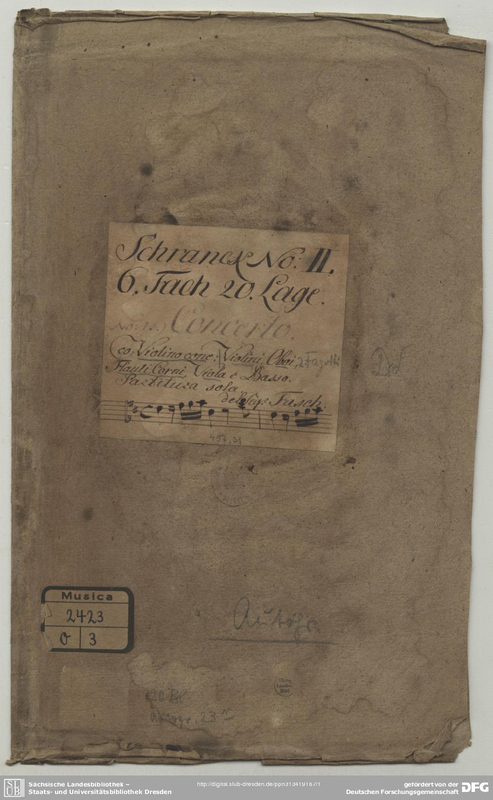 Schranck No: II.
6. Fach 20. Lage.
Concerto
co Violino conc: Violini, Oboi, 2 Fagotti
Flauti Corni, Viola e Basso.
Partitura sola
del Sigr Fresch.
Musica
2423
O 3
Autogr.
Sächsische Landesbibliothek –
Staats- und Universitätsbibliothek Dresden
gefördert von der
Deutschen Forschungsgemeinschaft
DFG